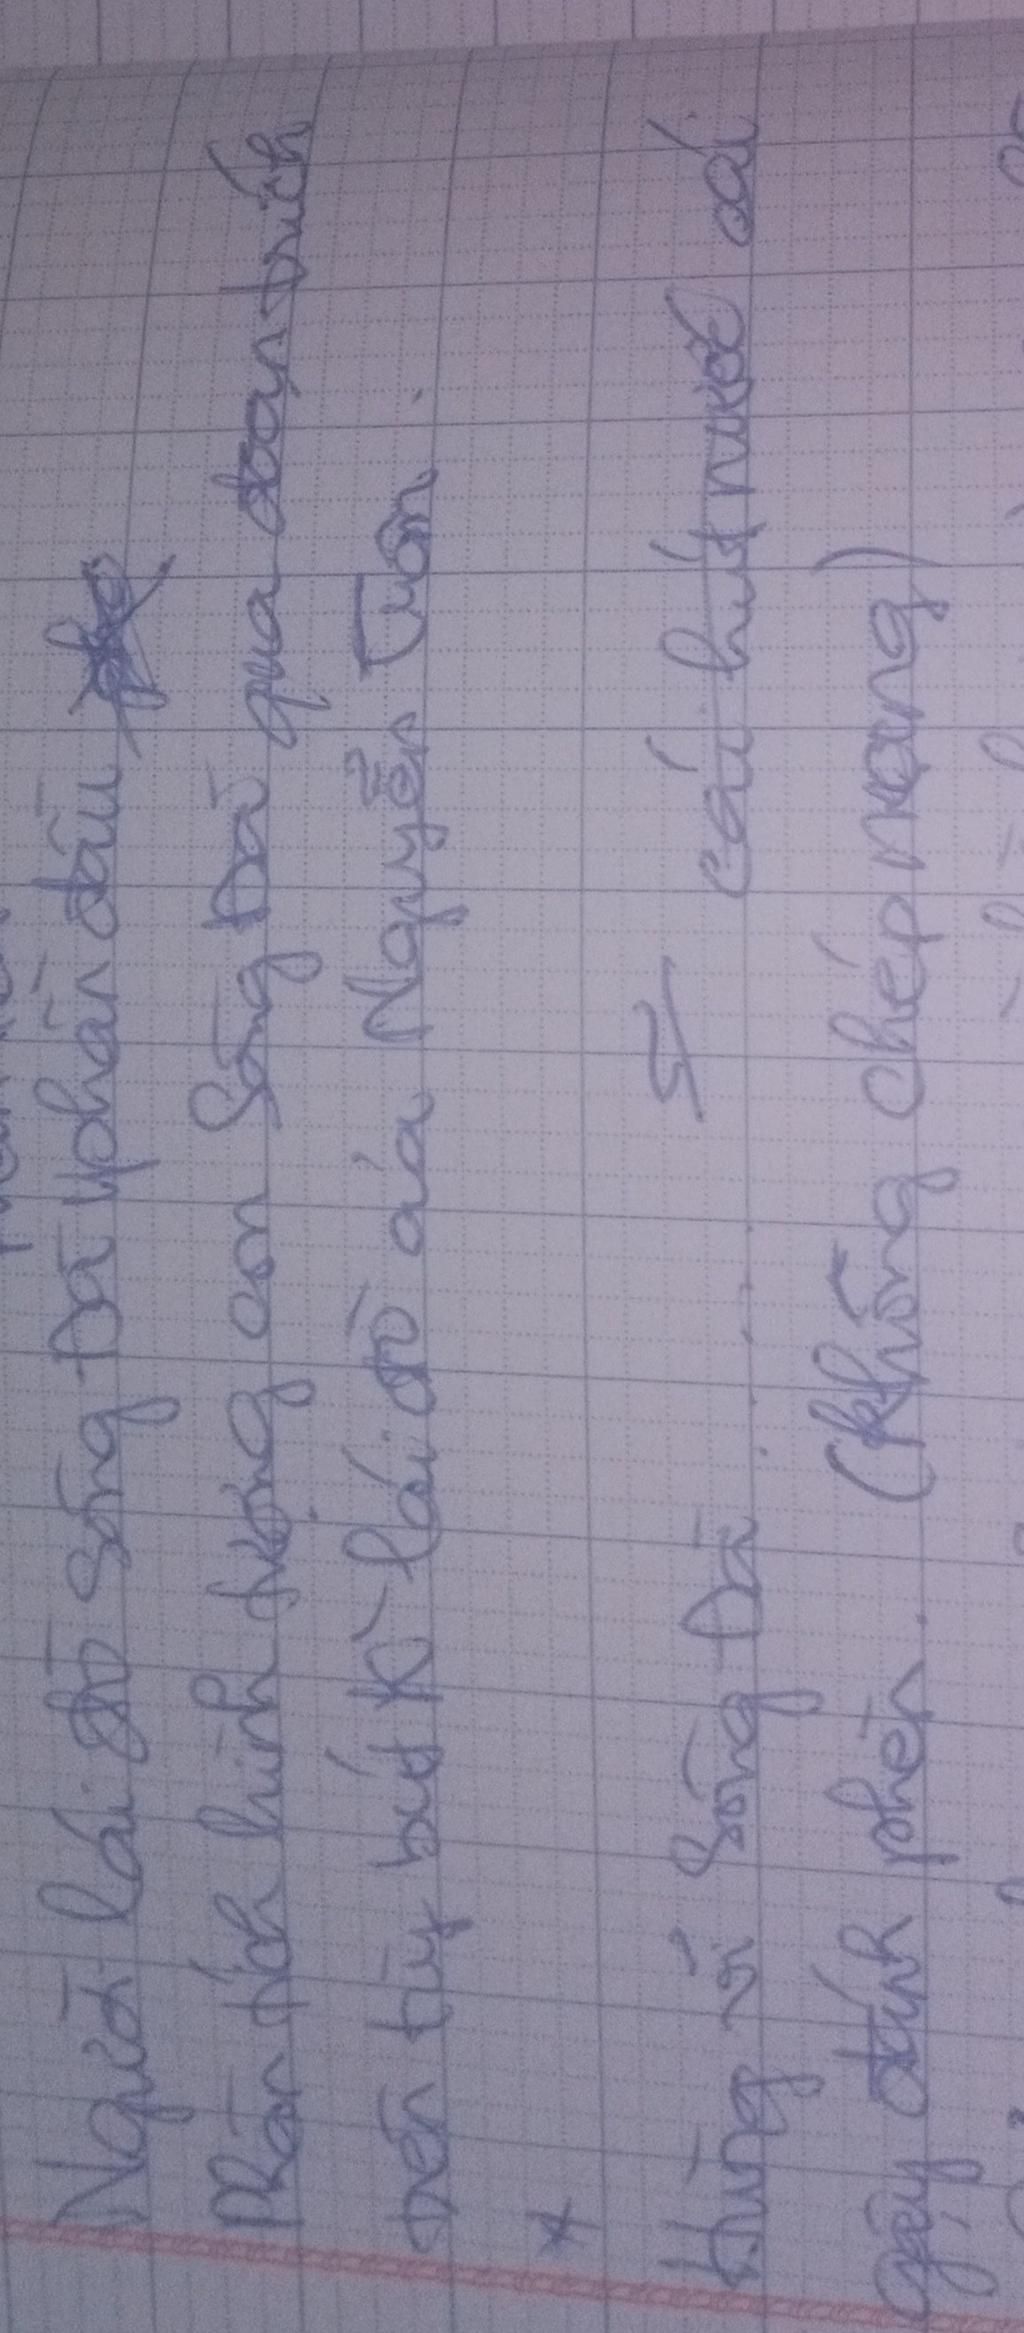 Người lái đò sông Đà (phần đầu
Phân tích hình tượng con Sông Đà qua đoạn trích
trên tùy bút Kí lái đò của Nguyễn Tuân.
*
Hùng vĩ Sông Đà .... => cái hút nước cái
gậy đánh phèn. (không chép mạng)